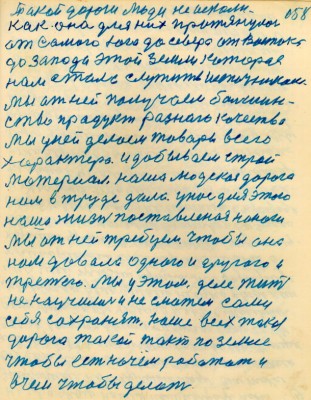 такой дороги люди не искали. 058
как она для них протянулась
от самого юго до севера от Востока
до Запода этой земли которая
нам стала служить источником.
Мы от ней получаем большин-
ство продукт разного качества
Мы у ней делаем товары всего
характера. и добываем строй
материал. наша людская дорога
нам в труде дала у нас для этого
наша жизнь поставленая на ноги
Мы от ней требуем чтобы она
нам давала одного и другого и
третьего. Мы у этом деле жить
не научились и не сможем сами
себя сохранять. наше всех такая
дорога такой такт по земле
чтобы есть на чем работать и
в чем чтобы делать